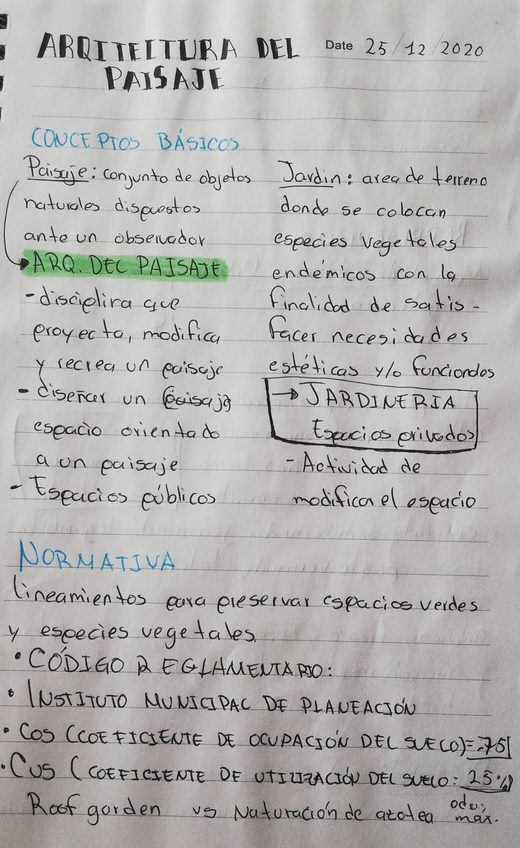 ARQITEITURA DEL
PAISAJE
Date 25/12/2020
CONCEPTOS BÁSICOS
Paisaje: conjunto de objetos
naturales dispuestos
ante un observador
ARQ. DEL PAISAJE
- disciplina que
proyecta, modifica
y recrea un paisaje
- diseñar un
espacio orientado
a un paisaje
- Espacios públicos
Jardin: area de terreno
donde se colocan
especies vegetales
endémicos con la
finalidad de satis-
facer necesidades
estéticas y/o funcionales
→ JARDINERIA
Espacios privados
- Actividad de
modificar el espacio
NORMATIVA
lineamientos para preservar espacios verdes
y especies vegetales
• CÓDIGO REGLAMENTARIO:
• INSTITUTO MUNICIPAL DE PLANEACIÓN
• COS (COEFICIENTE DE OCUPACIÓN DEL SUELO)=.75
• CUS (COEFICIENTE DE UTILIZACIÓN DEL SUELO: 25%)
Roof gorden vs Naturación de azotea
max.